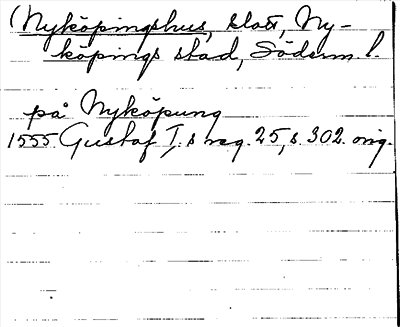 (Nyköpingshus, slott, Ny-
köpings stad, Söderm. l.
på Nyköpung
1555 Gustaf I.s reg. 25, s. 302. orig.